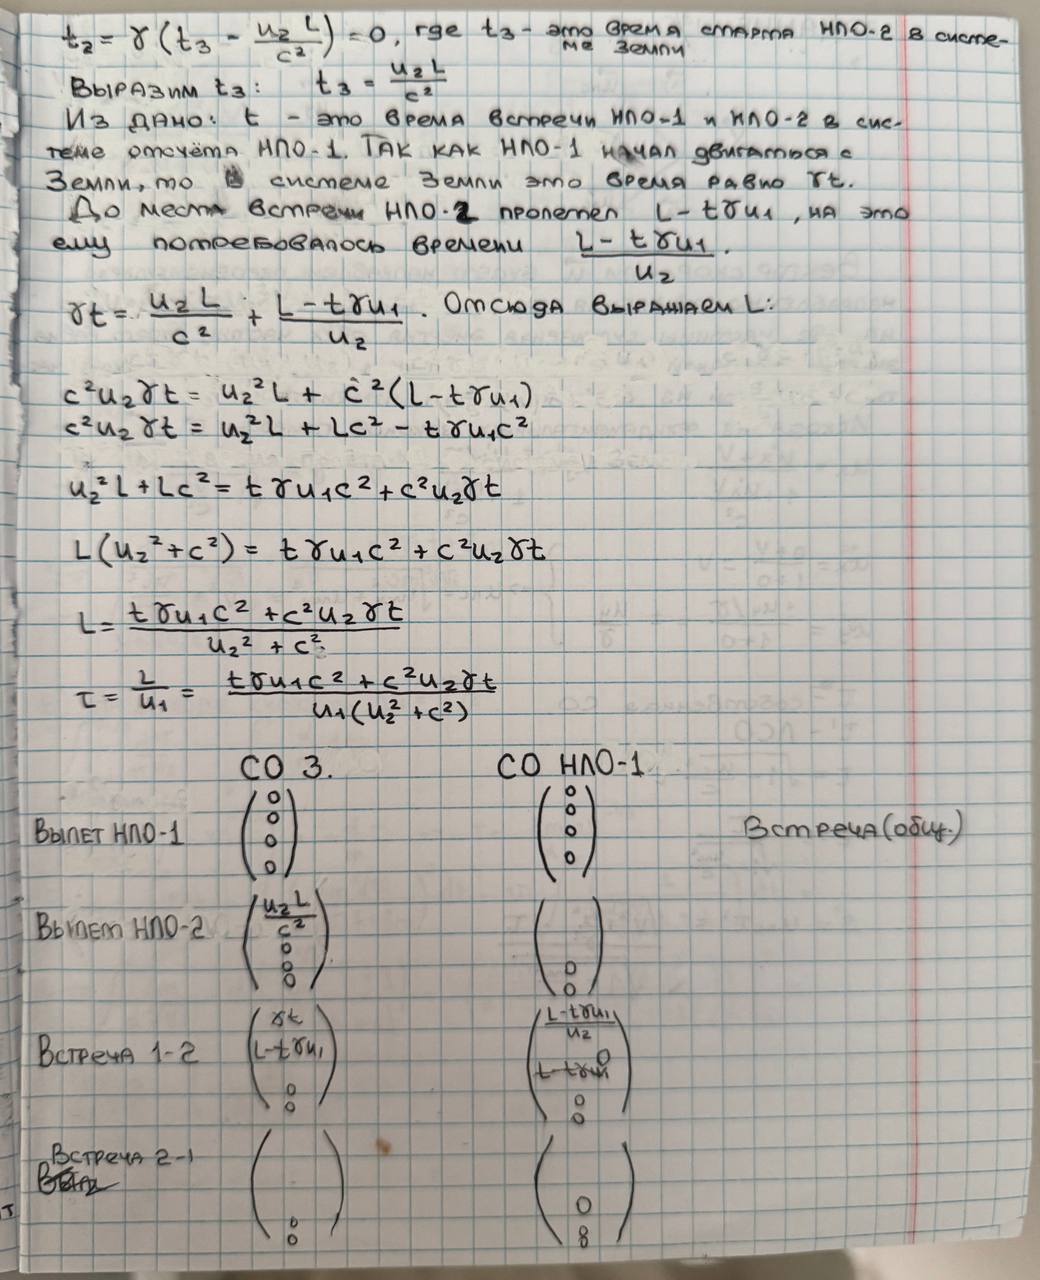 t₂ = γ(t₃ - u₂L/c²) = 0, где t₃ - это время старта НЛО-2 в систе-
ме Земли
Выразим t₃: t₃ = u₂L/c²
Из дано: t - это время встречи НЛО-1 и НЛО-2 в сис-
теме отсчёта НЛО-1. Так как НЛО-1 начал двигаться с
Земли, то в системе Земли это время равно γt.
До места встречи НЛО-2 пролетел L-tγu₁, на это
ему потребовалось времени (L-tγu₁)/u₂.
γt = u₂L/c² + (L-tγu₁)/u₂. Отсюда выражаем L:
c²u₂γt = u₂²L + c²(L-tγu₁)
c²u₂γt = u₂²L + Lc² - tγu₁c²
u₂²L + Lc² = tγu₁c² + c²u₂γt
L(u₂²+c²) = tγu₁c² + c²u₂γt
L = (tγu₁c² + c²u₂γt)/(u₂² + c²)
τ = L/u₁ = (tγu₁c² + c²u₂γt)/(u₁(u₂²+c²))
СО З. СО НЛО-1
Вылет НЛО-1 (0 0 0 0) (0 0 0 0) Встреча (общ.)
Вылет НЛО-2 (u₂L/c² 0 0 0) ( 0 0)
Встреча 1-2 (γt L-tγu₁ 0 0) ((L-tγu₁)/u₂ 0 0 0)
Встреча 2-1 ( 0 0) ( 0 0)